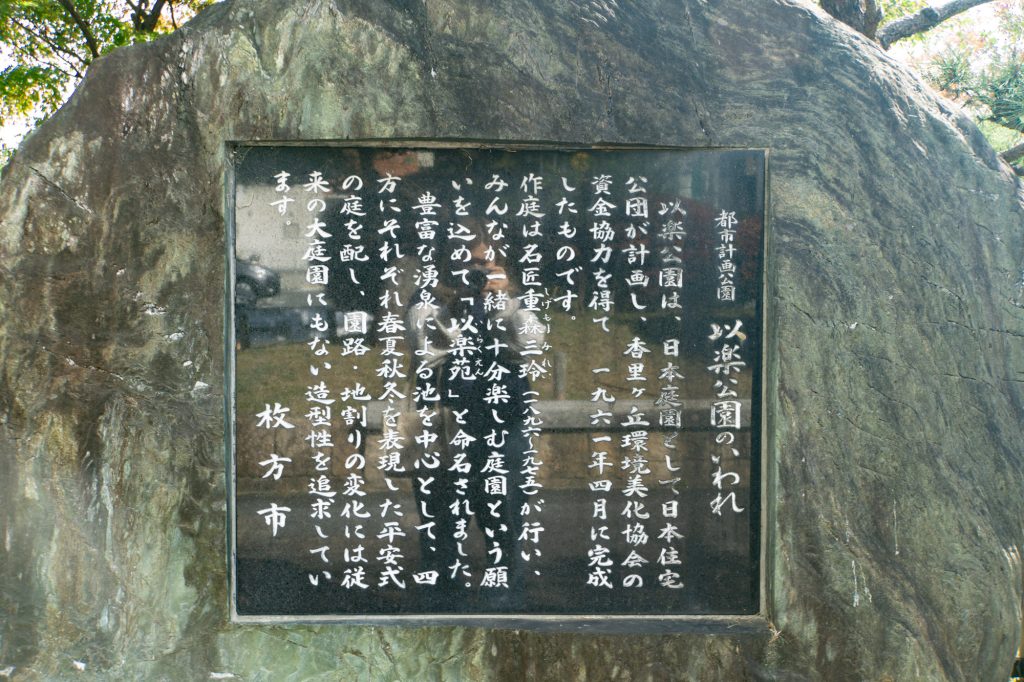 都市計画公園
以楽公園のいわれ
以楽公園は、日本庭園として日本住宅
公団が計画し、香里ヶ丘環境美化協会の
資金協力を得て 一九六一年四月に完成
したものです。
作庭は名匠重森三玲(一八九六〜一九七五)が行い、
しげもりみれい
みんなが一緒に十分楽しむ庭園という願
いを込めて「以楽苑」と命名されました。
いらくえん
豊富な湧泉による池を中心として、四
方にそれぞれ春夏秋冬を表現した平安式
の庭を配し、園路・地割りの変化には従
来の大庭園にもない造型性を追求してい
ます。
枚方市